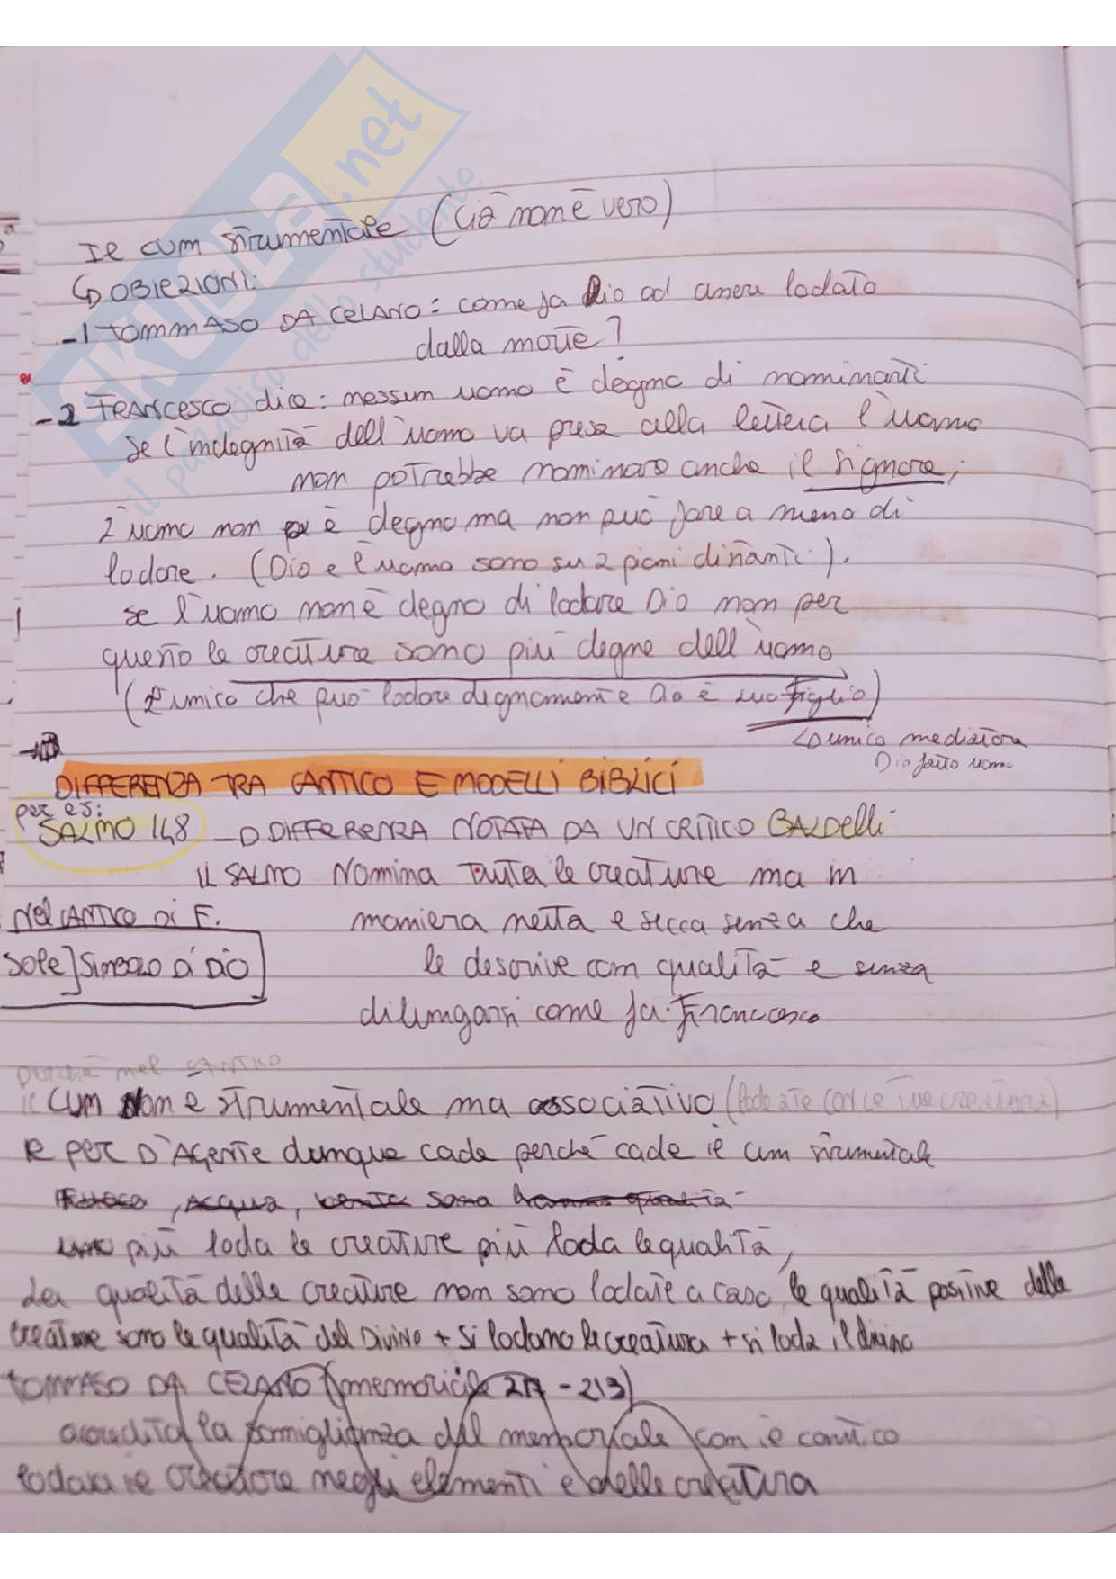 SKUOLA.net
il paradiso dello studente
Il cum strumentale (Già non è vero)
↳ OBIEZIONI:
-1 TOMMASO DA CELANO: come fa Dio ad essere lodato
dalla morte?
-2 Francesco dice: nessun uomo è degno di nominarti
Se l'indegnità dell'uomo va presa alla lettera l'uomo
non potrebbe nominare anche il Signore;
L'uomo non è degno ma non può fare a meno di
lodare. (Dio e l'uomo sono su 2 piani distanti).
se l'uomo non è degno di lodare Dio non per
questo le creature sono più degne dell'uomo
(L'unico che può lodare degnamente Dio è suo figlio)
↳ unico mediatore
Dio fatto uomo
DIFFERENZA TRA CANTICO E MODELLI BIBLICI
per es:
SALMO 148 → DIFFERENZA NOTATA DA UN CRITICO BALDELLI
IL SALMO Nomina tutte le creature ma in
Nel CANTICO DI F.
maniera netta e secca senza che
SOLE] SIMBOLO DI DIO
le descrive con qualità e senza
dilungarsi come fa Francesco
perché nel CANTICO
il CUM non è strumentale ma associativo (lodate con le tue creature)
e PER D'AGENTE dunque cade perché cade il cum strumentale
Fuoco, Acqua, sono qualità
più loda le creature più loda le qualità,
Le qualità delle creature non sono lodate a caso, le qualità positive delle
creature sono le qualità del Divino + si lodano le creature + si loda il divino
TOMMASO DA CELANO (memoriale - 213)
la somiglianza del memoriale con il cantico
lodava il creatore negli elementi e delle creature